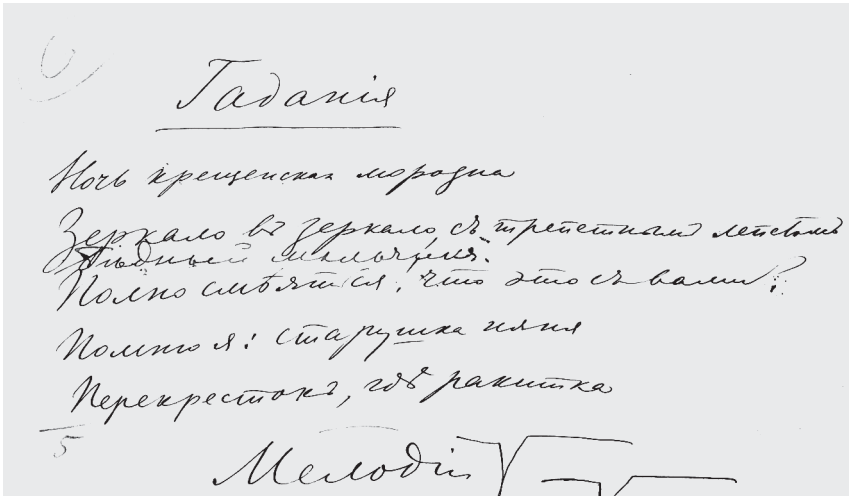 Гаданія
Ночь крещенская морозна
Зеркало въ зеркало, съ трепетнымъ лепетомъ
Полно смѣяться, что это съ вами?
Помню я: старушка няня
Перекрестокъ, гдѣ ракитка
5
Мелодіи